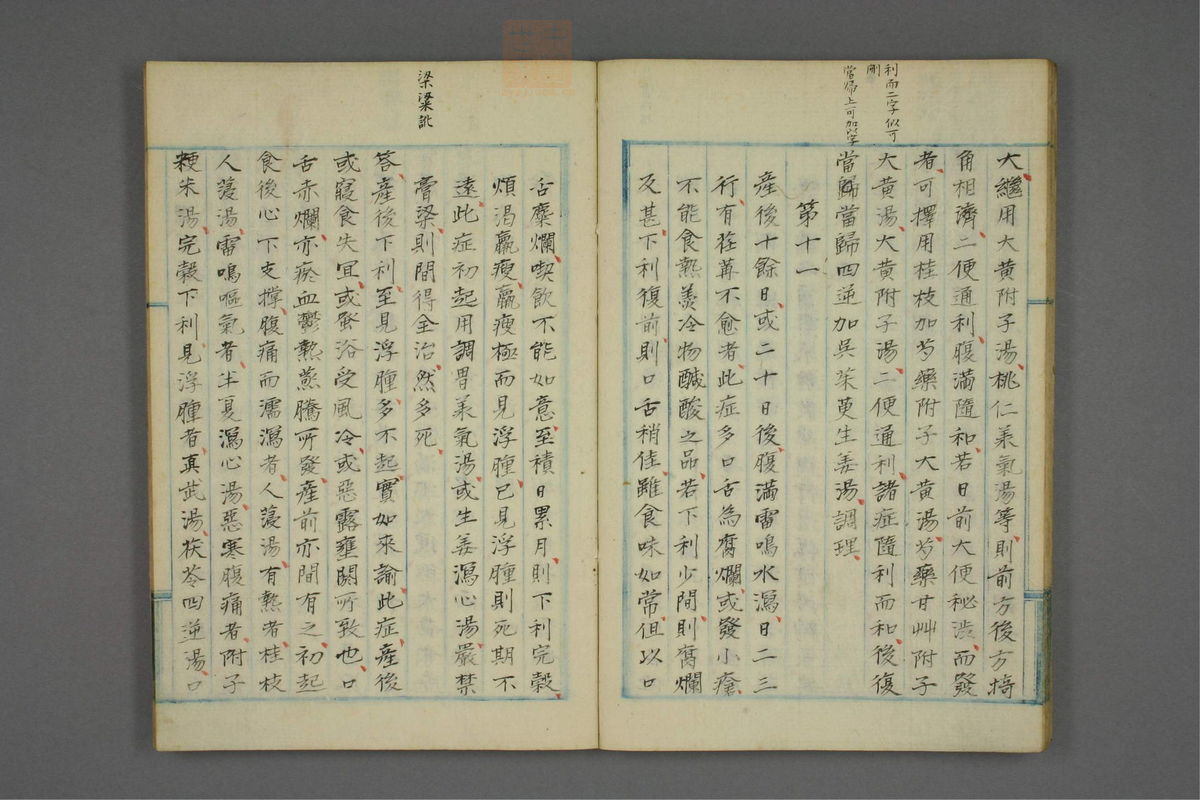 利而二字似可
刪
當歸上可加以字
大繼用大黃附子湯桃仁羨氣湯等則前方後方掎
角相濟二便通利腹滿隨和若日前大便秘澁而發
者可擇用桂枝加芍藥附子大黃湯芍藥甘艸附子
大黃湯大黃附子湯二便通利諸症隨利而和後復
當歸當歸四逆加吳茱萸生姜湯調理
第十一
產後十餘日或二十日後腹滿雷鳴水瀉日二三
行有荏苒不愈者此症多口舌為腐爛或發小瘡
不能食熱羹冷物醎酸之品若下利少間則腐爛
及甚下利復前則口舌稍佳雖食味如常但以口
梁粱訛
舌糜爛喫飲不能如意至積日累月則下利完穀
煩渴羸瘦羸瘦極而見浮腫已見浮腫則死期不
遠此症初起用調胃羨氣湯或生姜瀉心湯嚴禁
膏梁則間得全治然多死
答產後下利至見浮腫多不起實如來諭此症產後
或寢食失宜或蚤浴受風冷或惡露壅閼所致也口
舌赤爛亦瘀血鬱熱蒸騰所發產前亦間有之初起
食後心下支撐腹痛而濡瀉者人蓡湯有熱者桂枝
人蓡湯雷鳴嘔氣者半夏瀉心湯惡寒腹痛者附子
粳米湯完穀下利見浮腫者真武湯茯苓四逆湯口